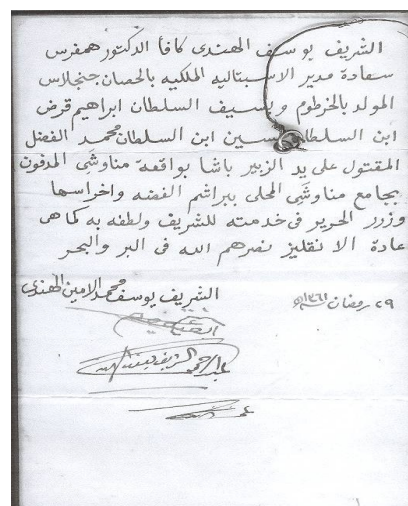 الشريف يوسف الهندى كافأ الدكتور همفرس
سعادة مدير الاسبتاليه الملكيه بالحصان جنجلاس
المولد بالخرطوم وبسيف السلطان ابراهيم قرض
ابن السلطان حسين ابن السلطان محمد الفضل
المقتول على يد الزبير باشا بواقعة مناوشى المدفون
بجامع مناوشى المحلى ببراشم الفضه واخراسها
وزرر الحرير فى خدمته للشريف ولطفه به كما هى
عادة الانقليز نصرهم الله فى البر والبحر
٢٩ رمضان ١٣٦١ الشريف يوسف محمد الامين الهندى